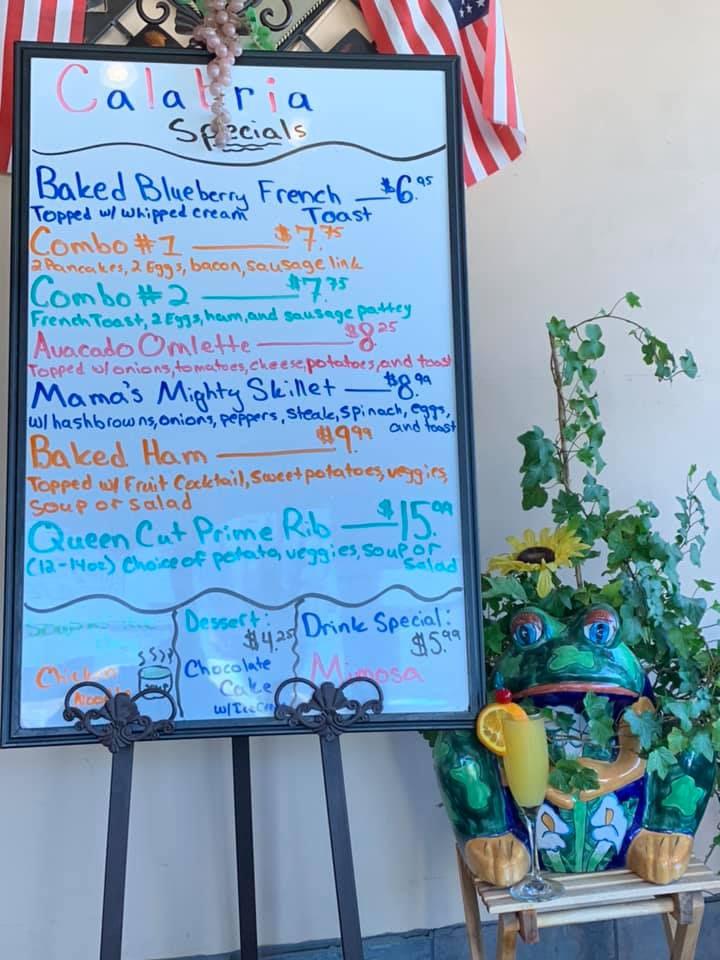 Calabria
Specials
Baked Blueberry French — $6.95
Topped w/ whipped cream Toast
Combo #1 — $7.75
2 Pancakes, 2 Eggs, bacon, sausage link
Combo #2 — $7.75
French Toast, 2 Eggs, ham, and sausage pattey
Avacado Omlette — $8.25
Topped w/ onions, tomatoes, cheese, potatoes, and toast
Mama's Mighty Skillet — $8.99
w/ hashbrowns, onions, peppers, steak, spinach, eggs,
and toast
Baked Ham — $9.99
Topped w/ Fruit Cocktail, Sweet potatoes, veggies,
soup or salad
Queen Cut Prime Rib — $15.99
(12-14oz) Choice of potato, veggies, soup or
salad
Soup of the
Chicken
Noodle
Dessert:
$4.25
Chocolate
Cake
w/ Ice
Drink Special:
$5.99
Mimosa